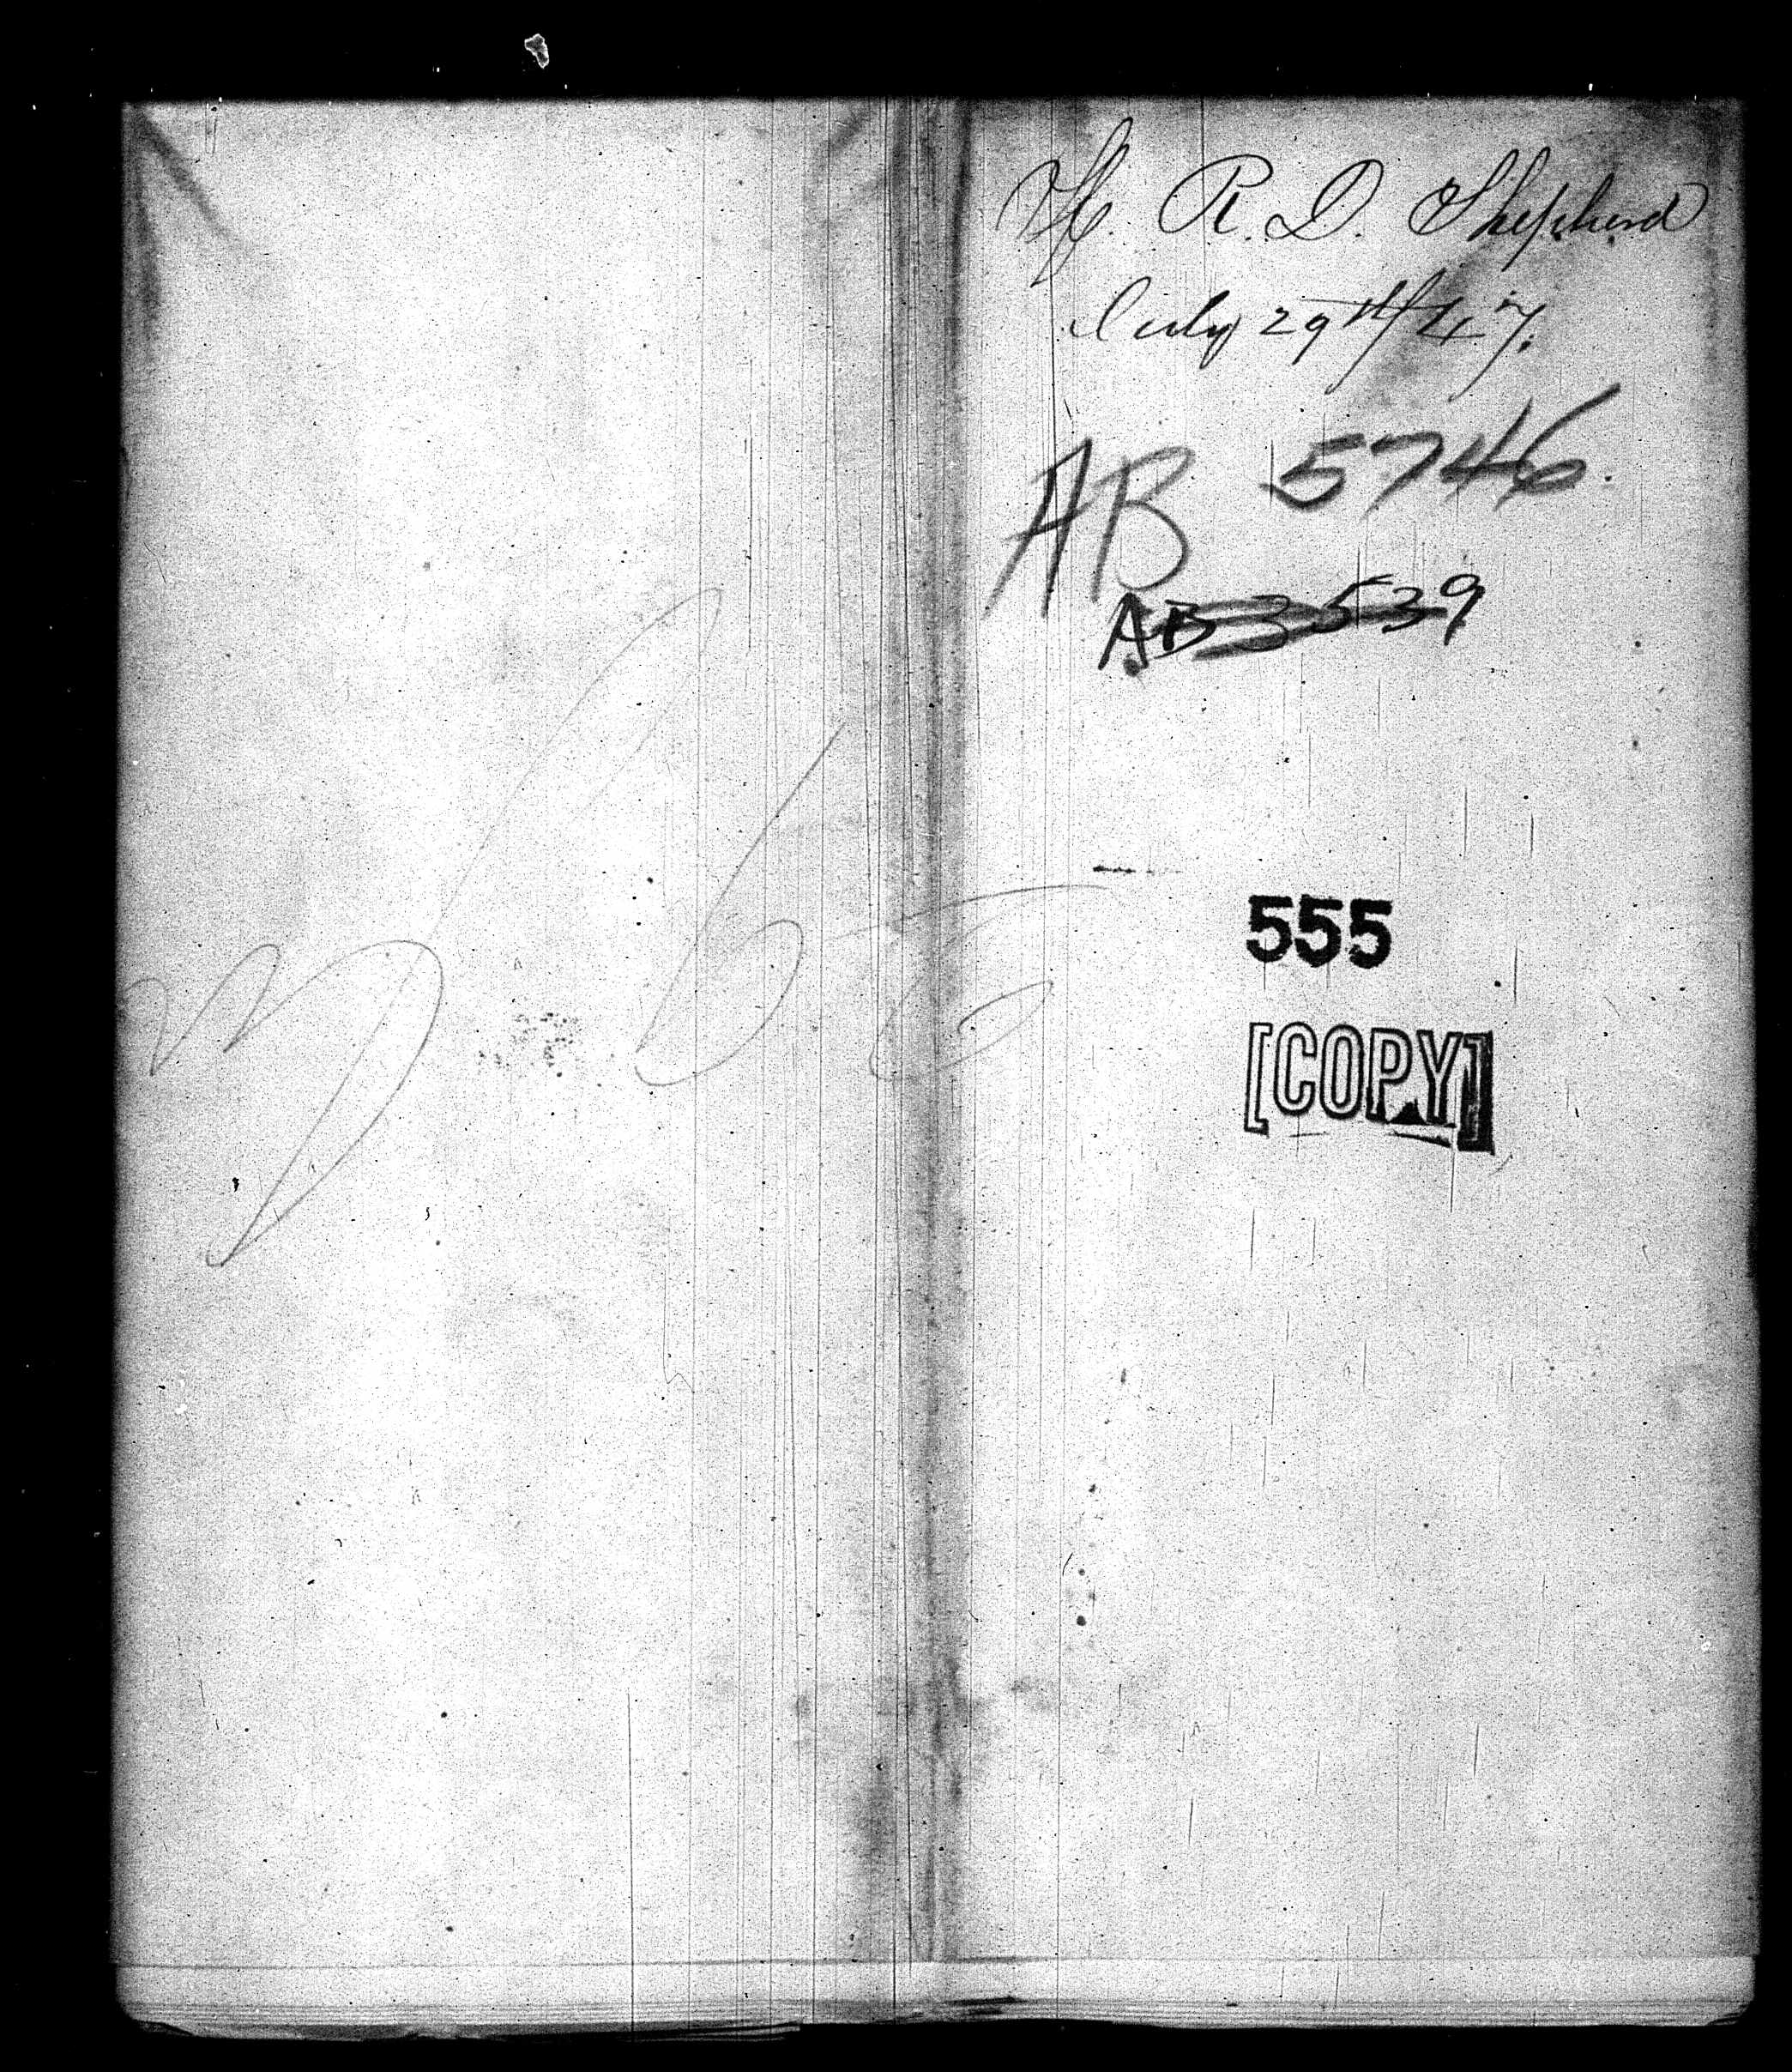 H. R. D. Shepherd
July 29th/47.
AB 5746.
AB 3539
555
[COPY]